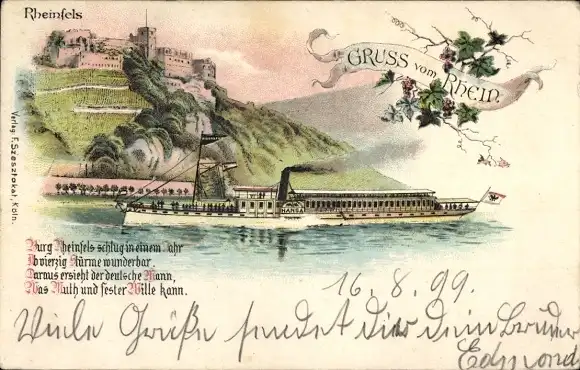 Rheinfels
GRUSS vom Rhein.
Verlag F. Szesztokat, Köln.
HANSA
Burg Rheinfels schlug in einem Jahr
Ob vierzig Stürme wunderbar,
Daraus ersieht der deutsche Mann,
Was Muth und fester Wille kann.
16. 8. 99.
Viele Grüße sendet dir dein Bruder
Edmond